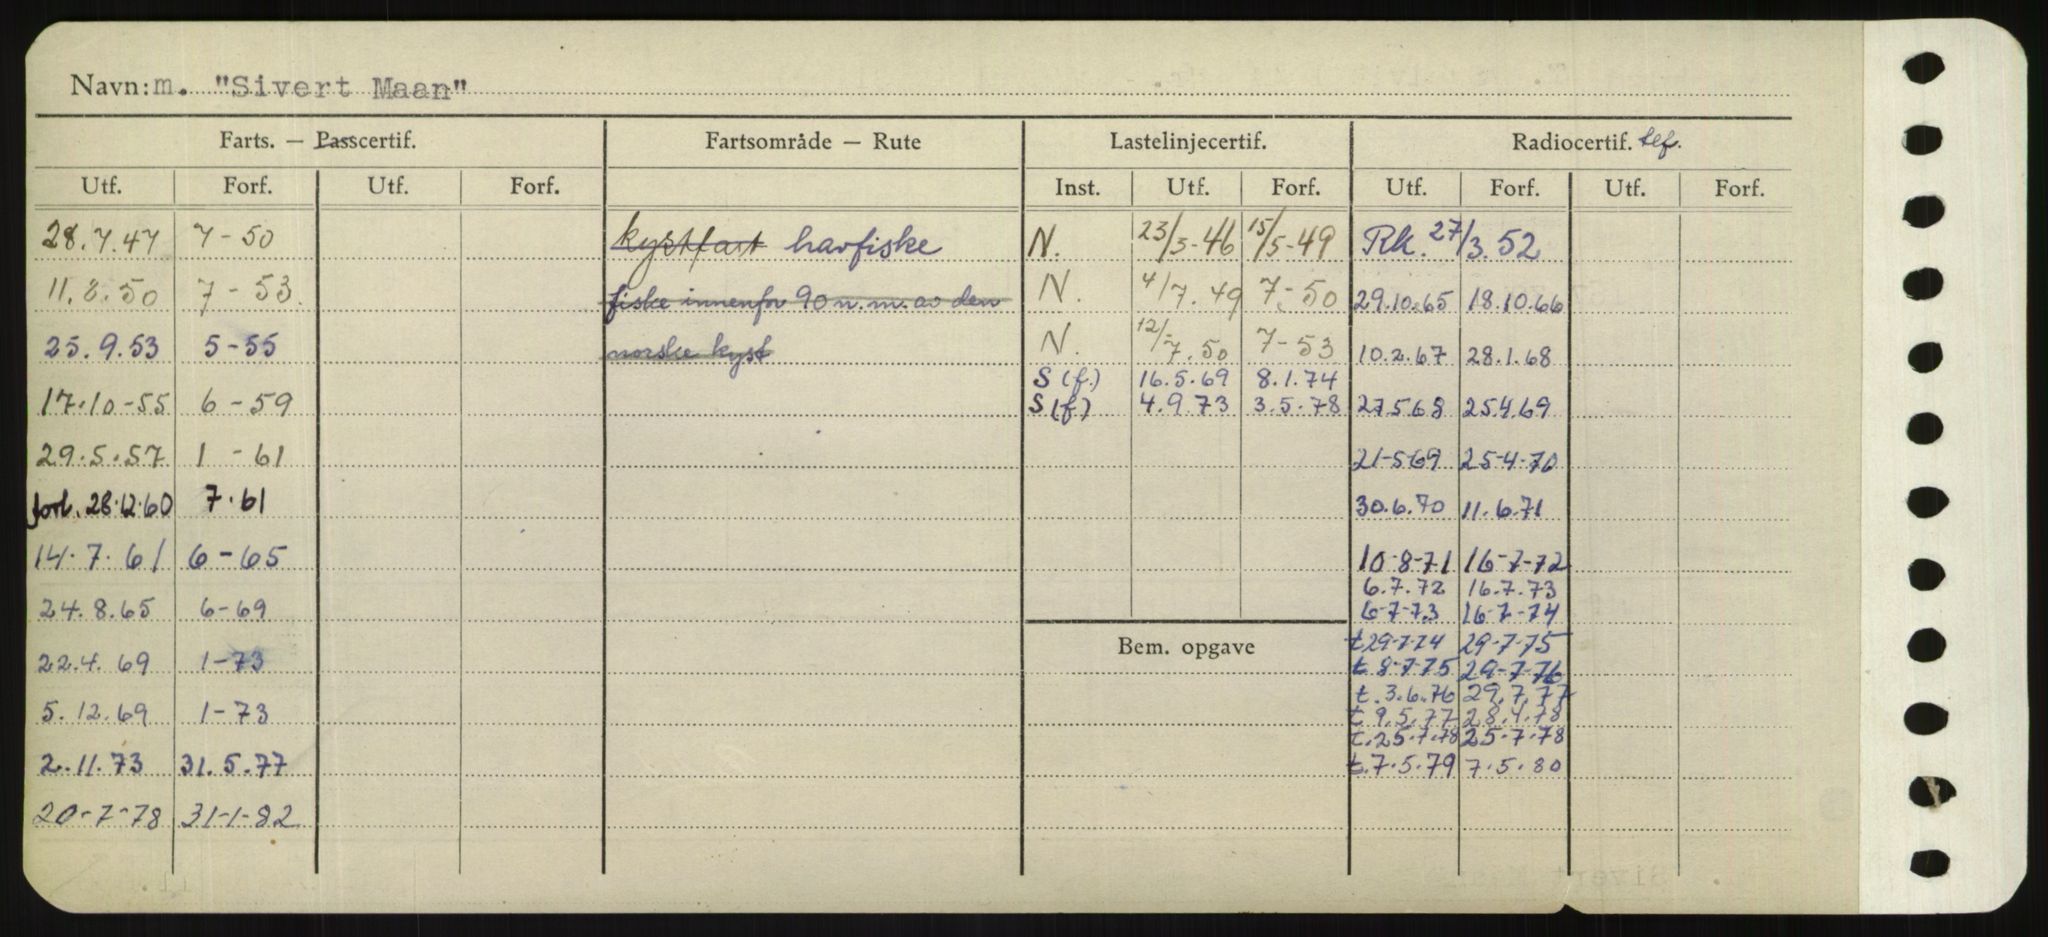 Navn: m. "Sivert Maan"
Farts. — Passcertif. Fartsområde — Rute Lastelinjecertif. Radiocertif. tlf.
Utf. Forf. Utf. Forf. Inst. Utf. Forf. Utf. Forf. Utf. Forf.
28.7.47 7-50 kystfart havfiske N. 23/5-46 15/5-49 Rk. 27/3.52
11.8.50 7-53. fiske innenfor 90 n.m. av den N. 4/7.49 7-50 29.10.65 18.10.66
25.9.53 5-55 norske kyst N. 12/7.50 7-53 10.2.67 28.1.68
S (f.) 16.5.69 8.1.74
17.10-55 6-59 S(f) 4.9.73 3.5.78 27568 25.4.69
29.5.57 1-61 21-5-69 25-4-70
forl. 28.12.60 7.61 30.6.70 11.6.71
14.7.61 6-65 10-8-71 16-7-72
6.7.72 16.7.73
24.8.65 6-69 6-7-73 16-7-74
Bem. opgave t29-7-74 29-7-75
22.4.69 1-73 t.8-7-75 29-7-76
t.3.6.76 29.7.77
5.12.69 1-73 t.9.5.77 28.4.78
t.25.7.78 25.7.78
2.11.73 31.5.77 t.7.5.79 7.5.80
20-7-78 31-1-82